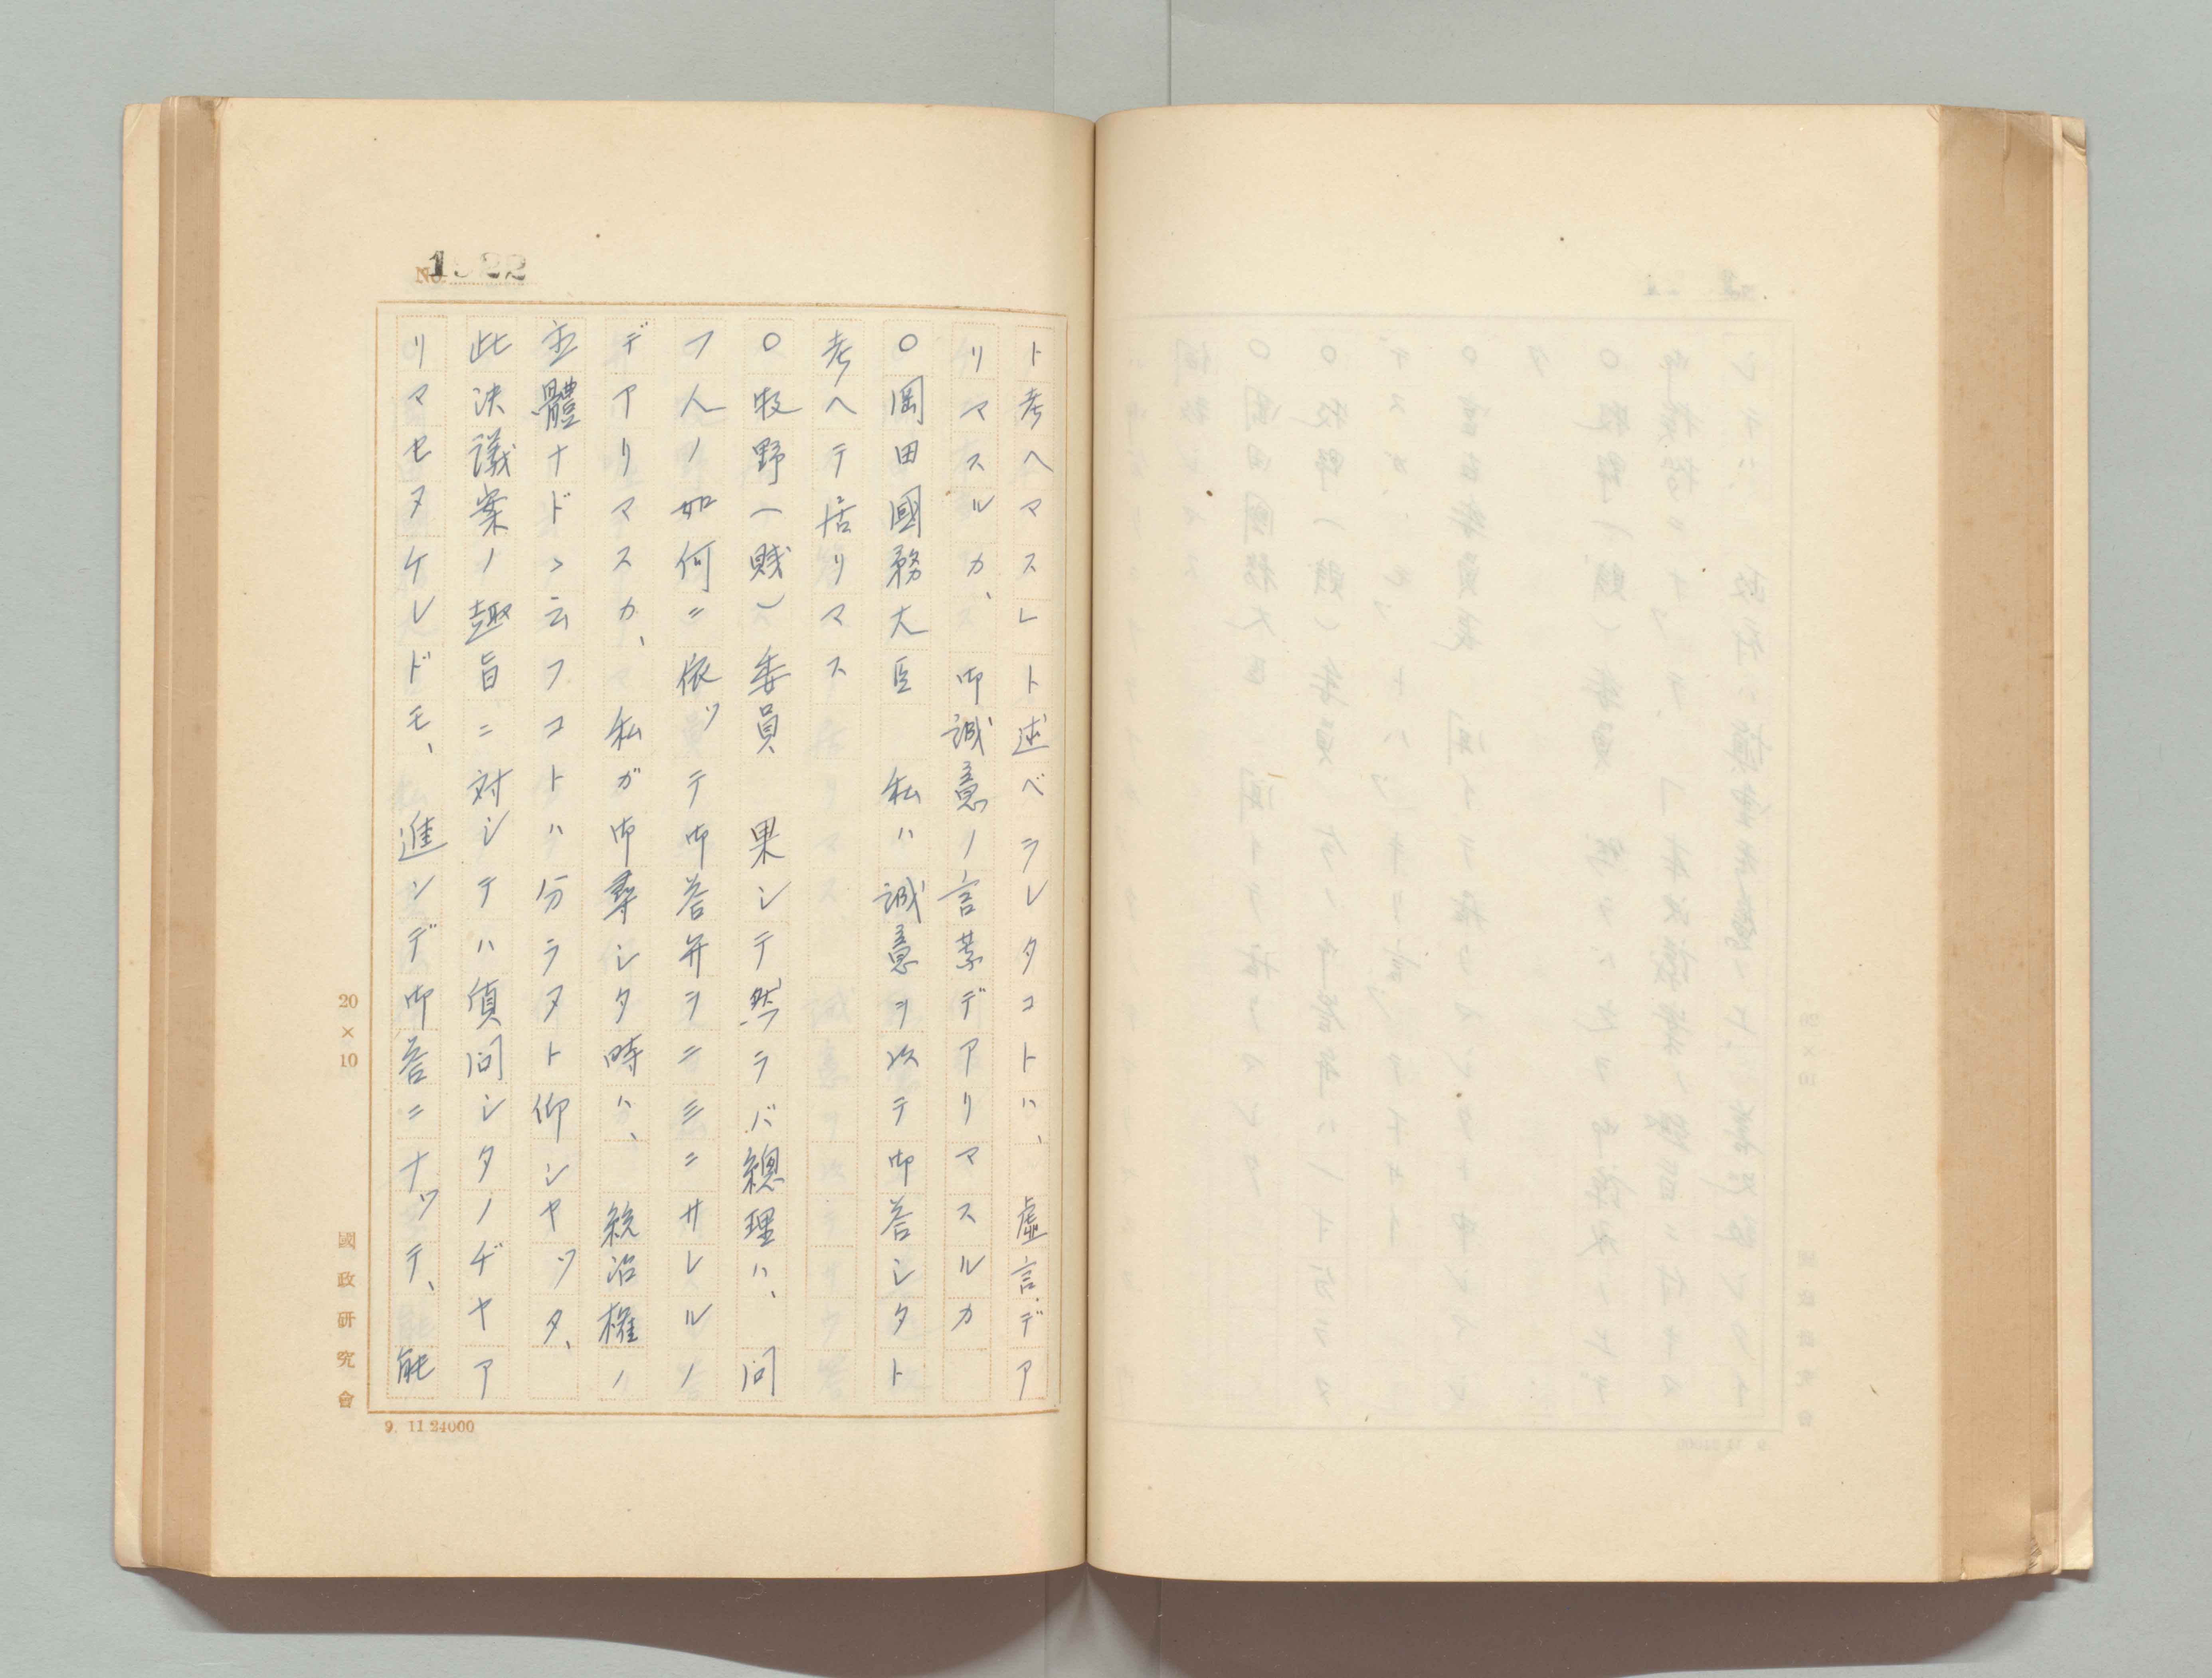 1922
ト考ヘマスレト述ベラレタコトハ、虚言デア
リマスルカ、御誠意ノ言葉デアリマスルカ
○岡田國務大臣　私ハ誠意ヲ以テ御答シタト
考ヘテ居リマス
○牧野(賤)委員　果シテ然ラバ總理ハ、問
フ人ノ如何ニ依ツテ御答弁ヲニ三ニサレルノ
デアリマスカ、私ガ御尋シタ時ハ、統治權ノ
主體ナドヽ云フコトハ分ラヌト仰シヤツタ、
此決議案ノ趣旨ニ対シテハ質問シタノヂヤア
リマセヌケレドモ、進ンデ御答ニナツテ、能
20×10
國政研究會
9. 11 24000